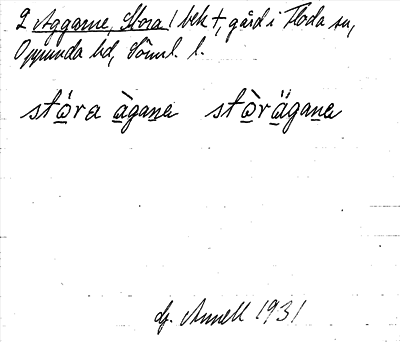 2 Aggarne, Stora / bek †, gård i Floda sn,
Oppunda hd, Söml. l.
stɷ́ra àgana stɷ̀rä̀gana
df. Annell 1931